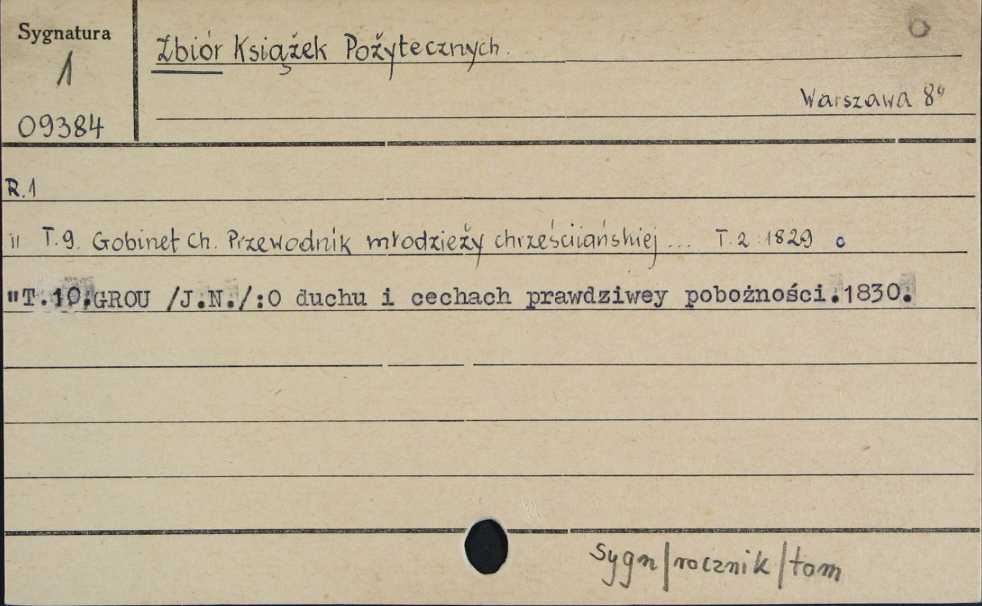 Sygnatura
1
09384
Zbiór Książek Pożytecznych.
Warszawa 8°
R.1
" T.9. Gobinet Ch. Przewodnik młodzieży chrześciiańskiej ... T.2 : 1829
"T.10.GROU /J.N./:O duchu i cechach prawdziwey pobożności.1830.
Sygn/rocznik/tom